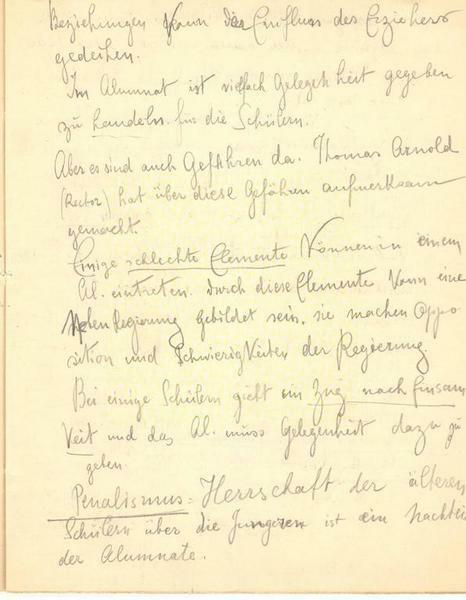 Beziehungen kann der Einfluss des Erziehers
gedeihen.
Im Alumnat ist vielfach Gelegenheit gegeben
zu handeln für die Schülern.
Aber es sind auch Gefahren da. Thomas Arnold
(Rector) hat über diese Gefahren aufmerksam
gemacht.
Einige schlechte Elemente können in einem
Al. eintreten. Durch diese Elemente kann eine
NebenRegierung gebildet sein, sie machen Oppo
sition und Schwierigkeiten der Regierung
Bei einige Schülern gieht ein Zug nach Einsam
keit und das Al. muss Gelegenheit dazu
geben
Penalismus = Herrschaft der älteren
Schülern über die Jungeren ist ein Nachteil
der Alumnate.